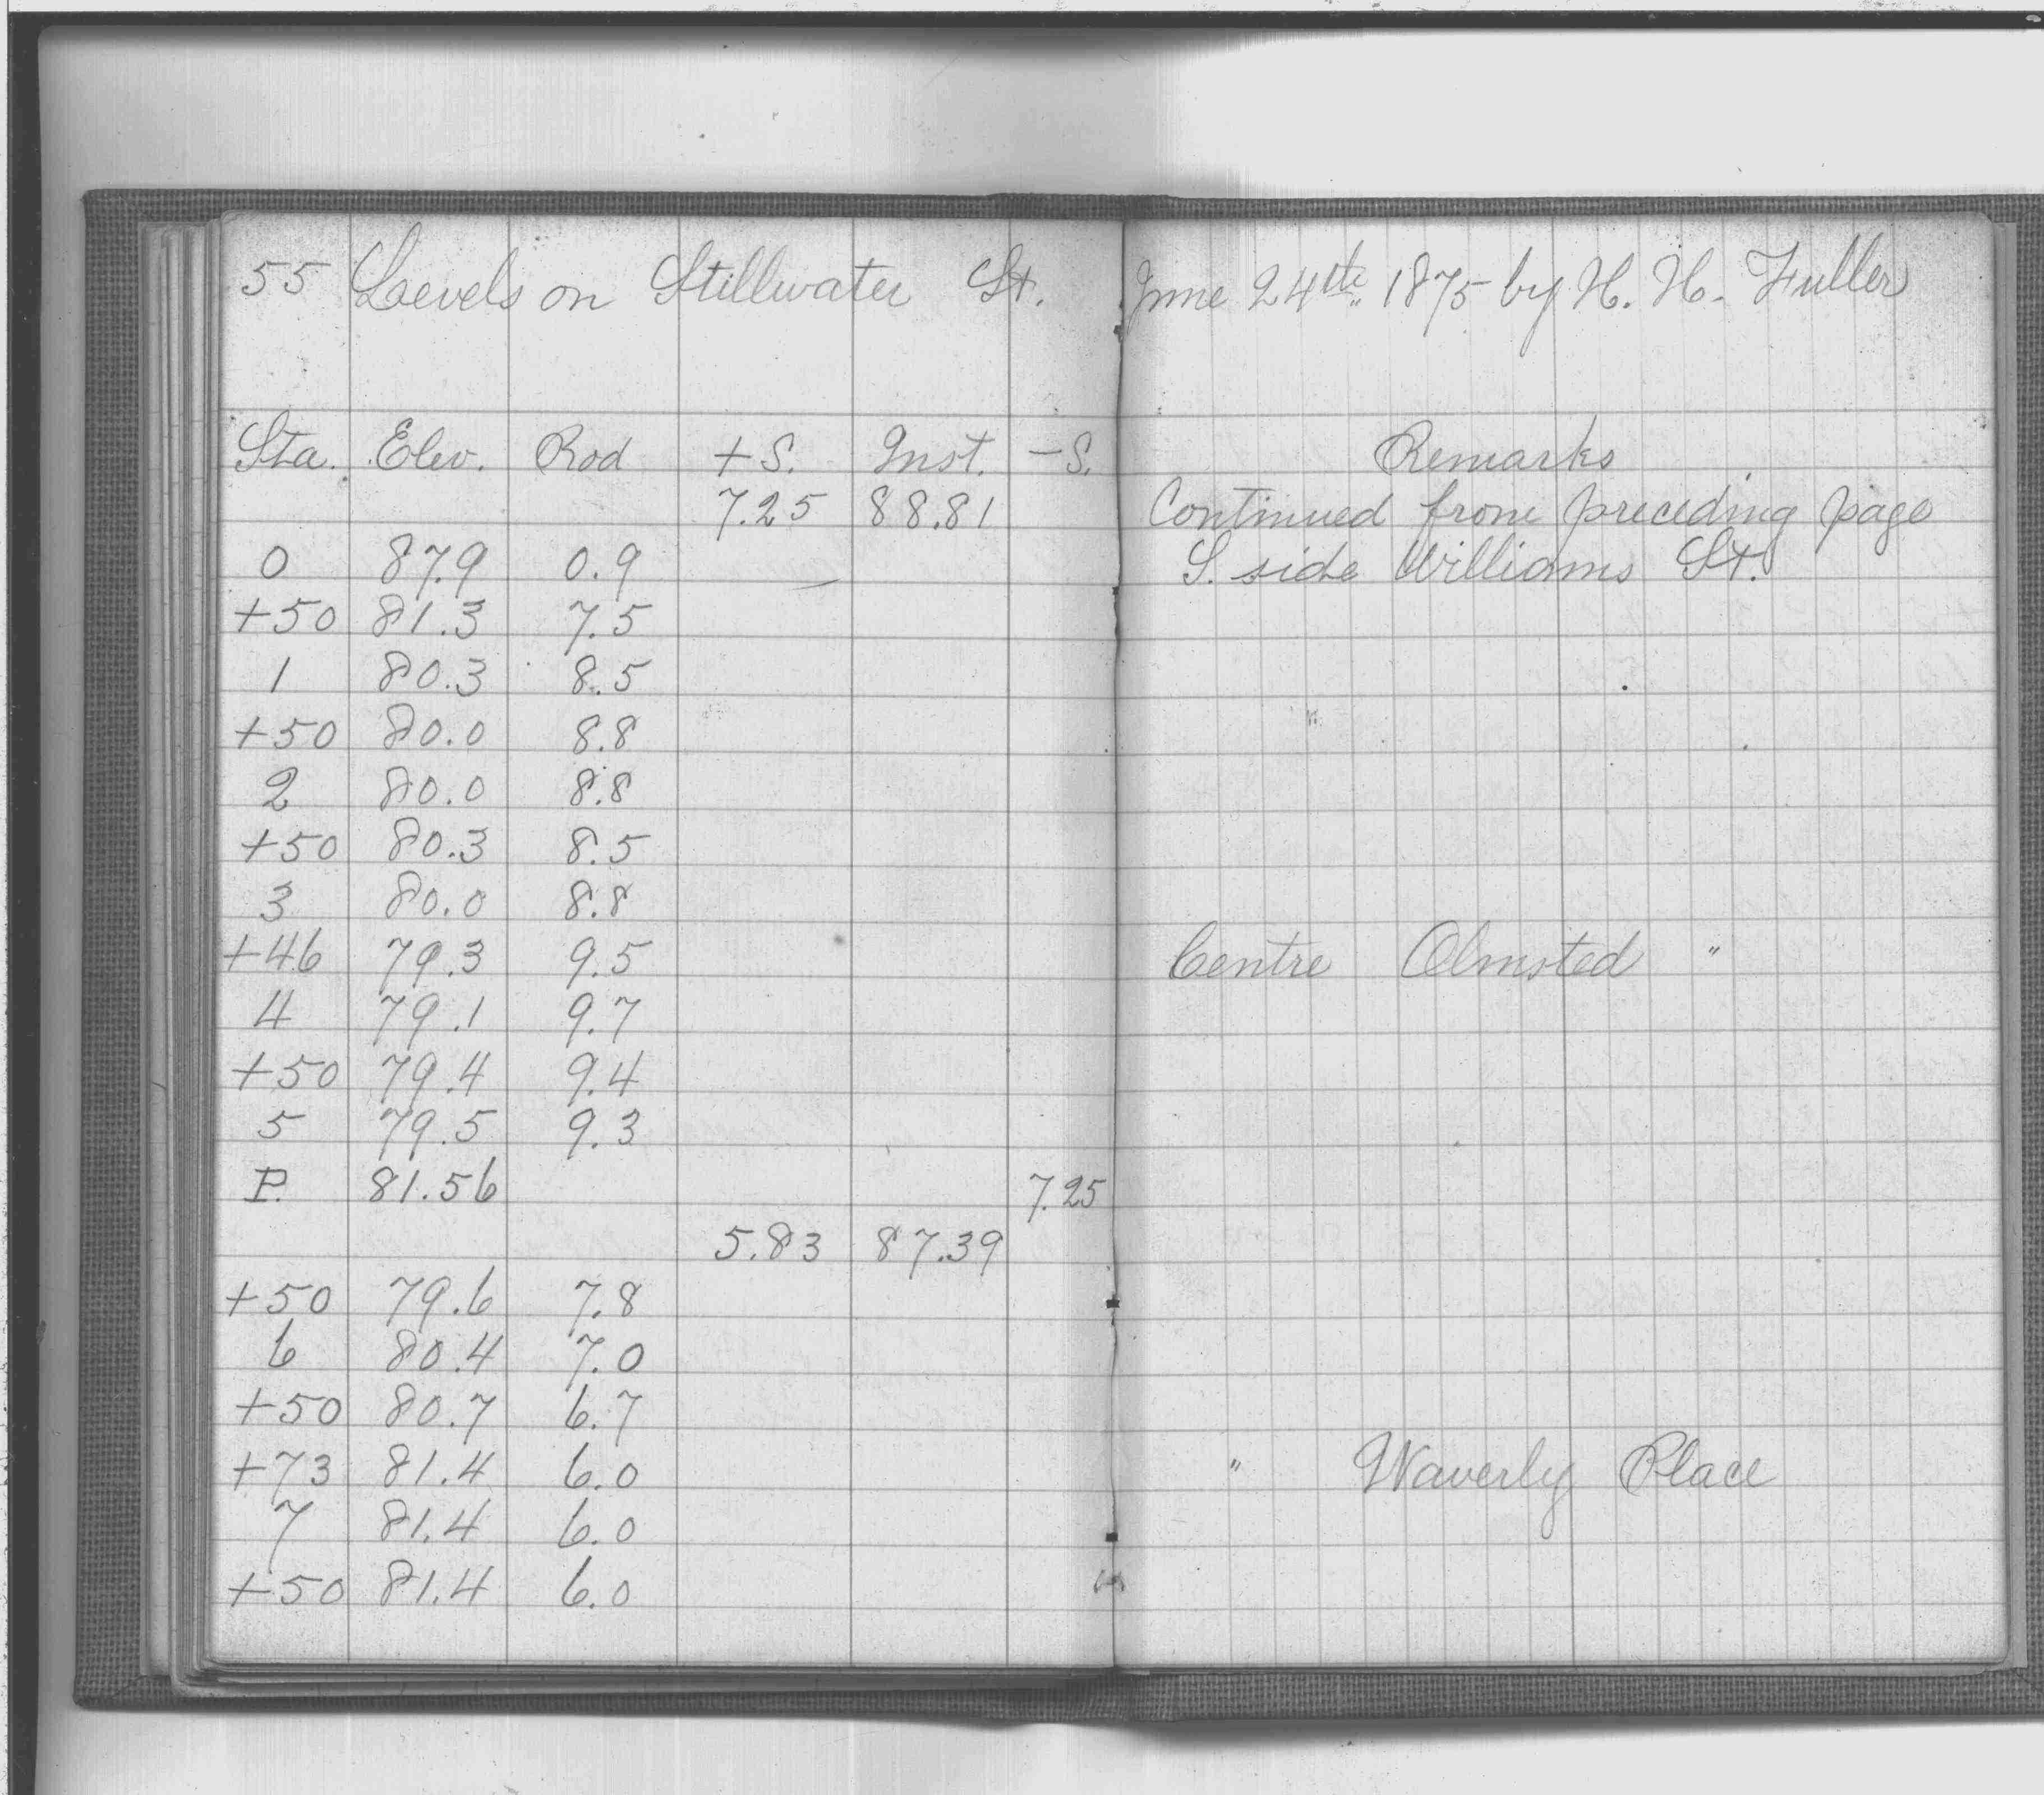 55 Levels on Stillwater St. June 24th 1875 by H. H. Fuller
Sta. Elev. Rod +S. Inst. -S. Remarks
7.25 88.81 Continued from preceding page
0 87.9 0.9 S. side Williams St.
+50 81.3 7.5
1 80.3 8.5
+50 80.0 8.8
2 80.0 8.8
+50 80.3 8.5
3 80.0 8.8
+46 79.3 9.5 Centre Olmsted "
4 79.1 9.7
+50 79.4 9.4
5 79.5 9.3
P. 81.56 7.25
5.83 87.39
+50 79.6 7.8
6 80.4 7.0
+50 80.7 6.7
+73 81.4 6.0 " Waverly Place
7 81.4 6.0
+50 81.4 6.0